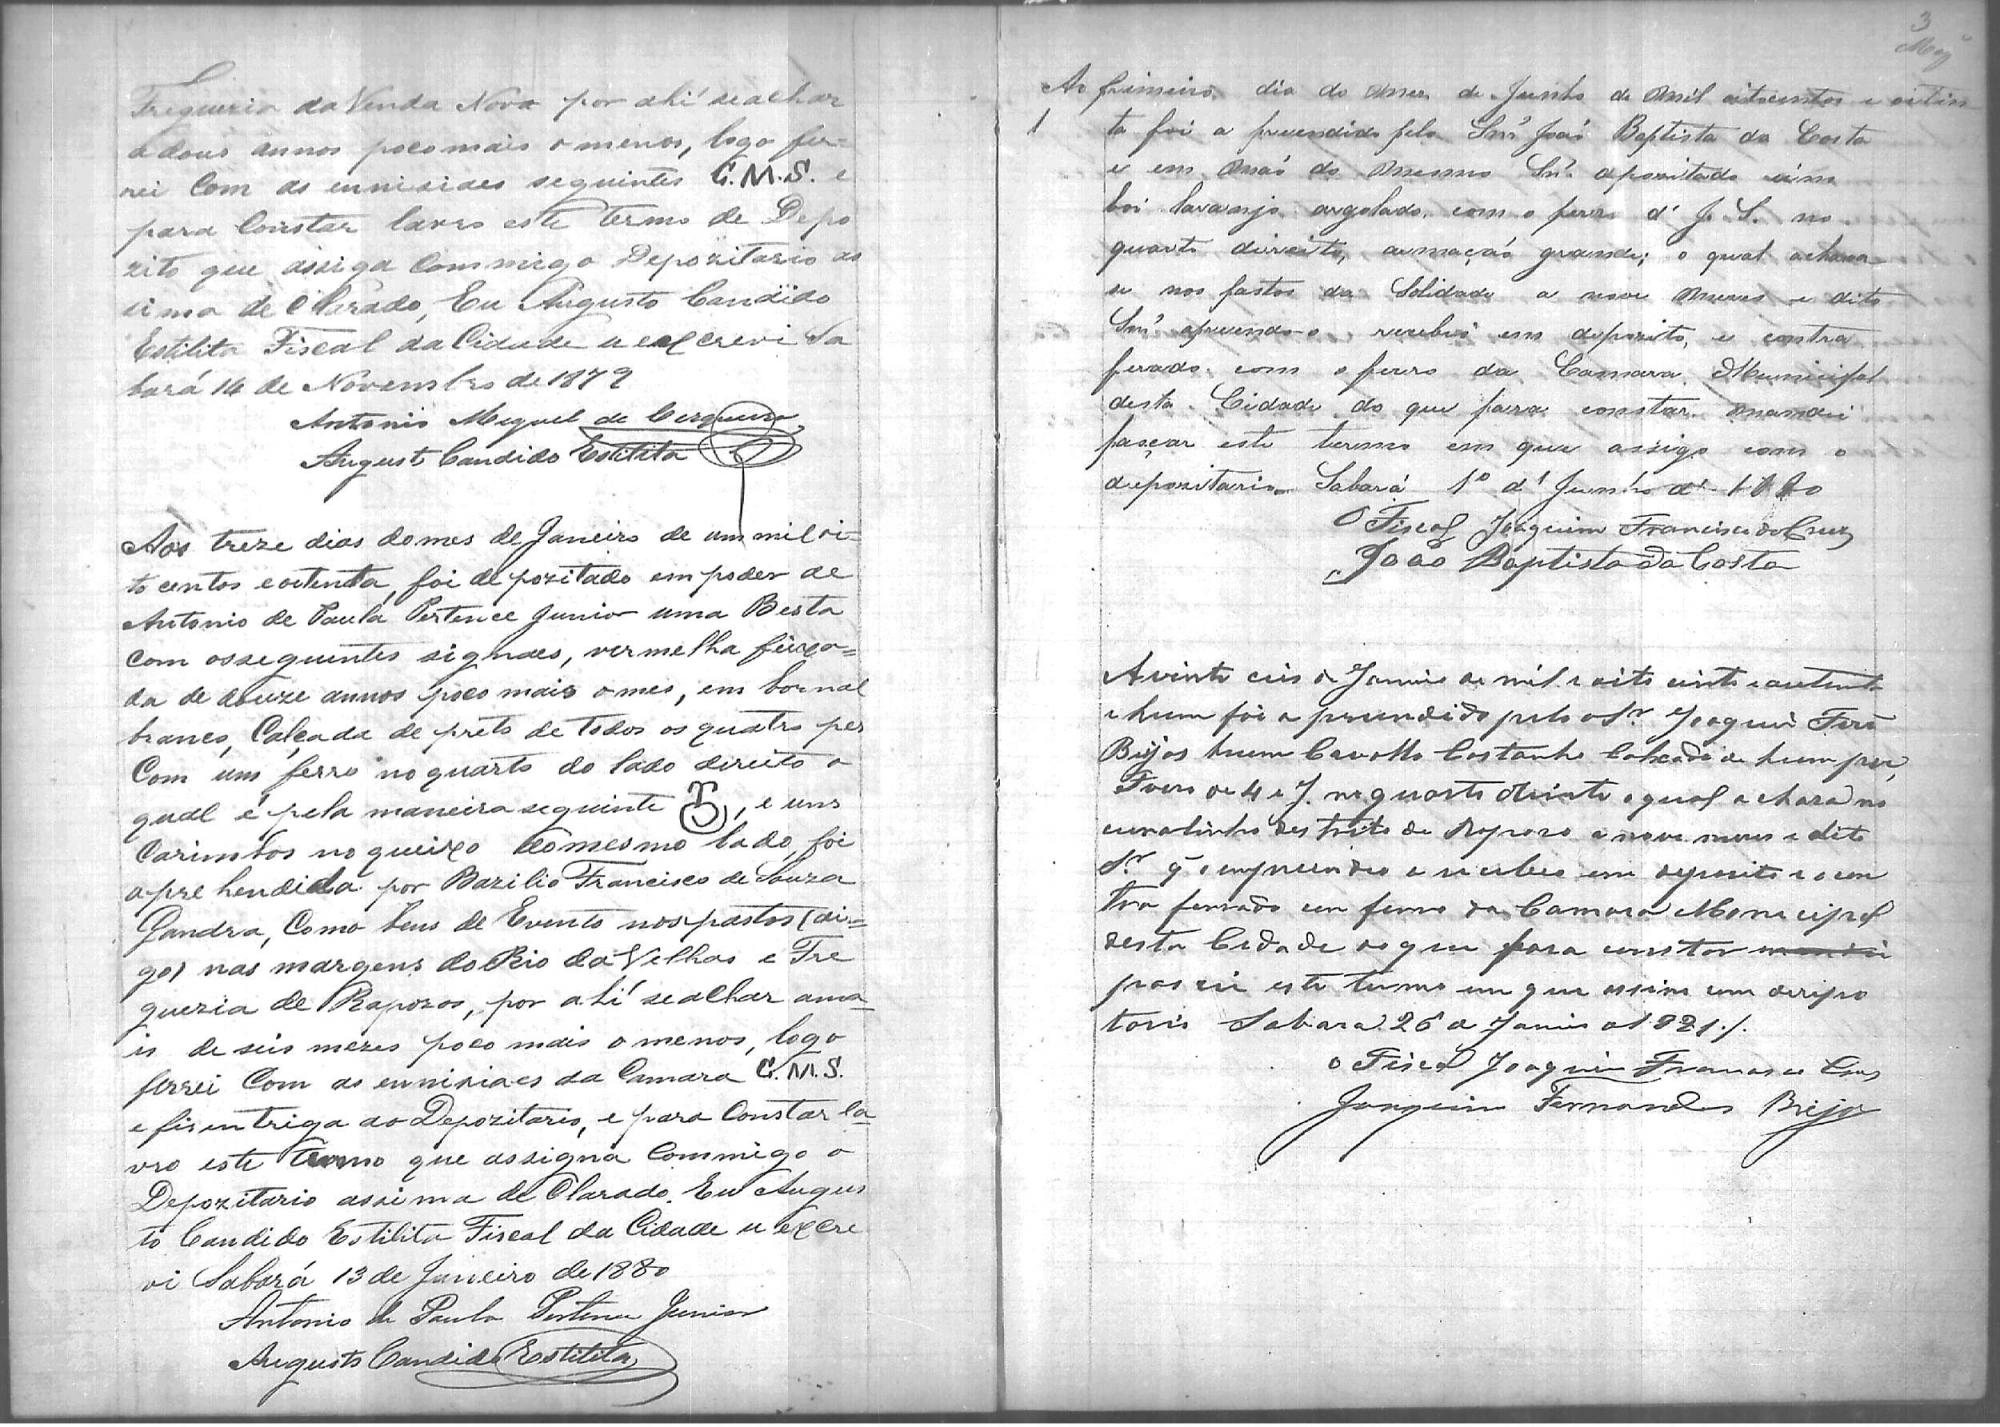 Freguezia da Venda Nova por ahi se achar
a dous annos poco mais o menos, logo fer=
rei Com as enniciaes seguintes C.M.S. e
para Constar lavro este termo de Depo
zito que assiga Commigo Depozitario as
sima de Clarado, Eu Augusto Candido
Estilita Fiscal da Cidade u excrevi Sa
bará 14 de Novembro de 1879
Antonio Miguel de Cerqueira
Augusto Candido Estilita
Aos treze dias do mes de Janeiro de um mil oi-
to centos e oitenta, foi depozitado em poder de
Antonio de Paula Pertence Junior uma Besta
com os seguentes signaes, vermelha feixa=
da de douze annos poco mais o mes, em bornal
branco, Calcada de preto de todos os quatro pes
Com um ferro no quarto do lado direito o
qual é pela maneira seguinte , e uns
Carimbos no queixo do mesmo lado, foi
aprehendida por Bazilio Francisco de Souza
Gandra, Como bens de Evento nos pastos (di=
go) nas margens do Rio da Velhas e Fre
guezia de Rapozos, por ahi se achar a ma=
is de seis mezes poco mais o menos, logo
ferrei Com as enniciaes da Camara C.M.S.
e fis entriga ao Depozitario, e para Constar la=
vro este termo que assigna Commigo o
Depozitario assima de Clarado. Eu Augus
to Candido Estilita Fiscal da Cidade u excre
vi Sabará 13 de Janeiro de 1880
Antonio de Paula Pertence Junior
Augusto Candido Estilita
3
Ao primeiro dia do mez de Junho de mil oitocentos e oitin
1 ta foi a preendido pelo Snr João Baptista da Costa
e em mão do mesmo Snr. apozitado úm
boi laranjo argolado com o ferro d' J. S. no
quarto direito, armação grande; o qual achava
se nos pastos da Solidade a nove mezes e dito
Snr apreendo-o, recebeo em depozito, e contra
ferado com o ferro da Camara Municipal
desta Cidade do que para constar mandei
passar este termo em que assigo com o
depozitario Sabará 1º d' Junho d' 1880
O Fiscal Joaquim Francisco da Cruz
João Baptista da Costa
A vinte ceis de Janeiro de mil e oito cento e outenta
e hum foi a preendido pelo Sr Joaquim Ferz
Brejos hum Cavallo Castanho Calcado de hum pee,
Ferro de 4 e J. no quarto direito o qual a chava no
curralinho destrito de Raposo a nove mezes e dito
Sr q o enpreendeo e recebeo em deposito e o con
tra ferrado con ferro da Camara Monicipal
desta Cidade do que para constar mandei
passei este termo em que assino com depo
torio Sabara 26 de Janeiro d 1881./.
O Fiscal Joaquim Francisco Cruz
Joaquim Fernandes Brejos